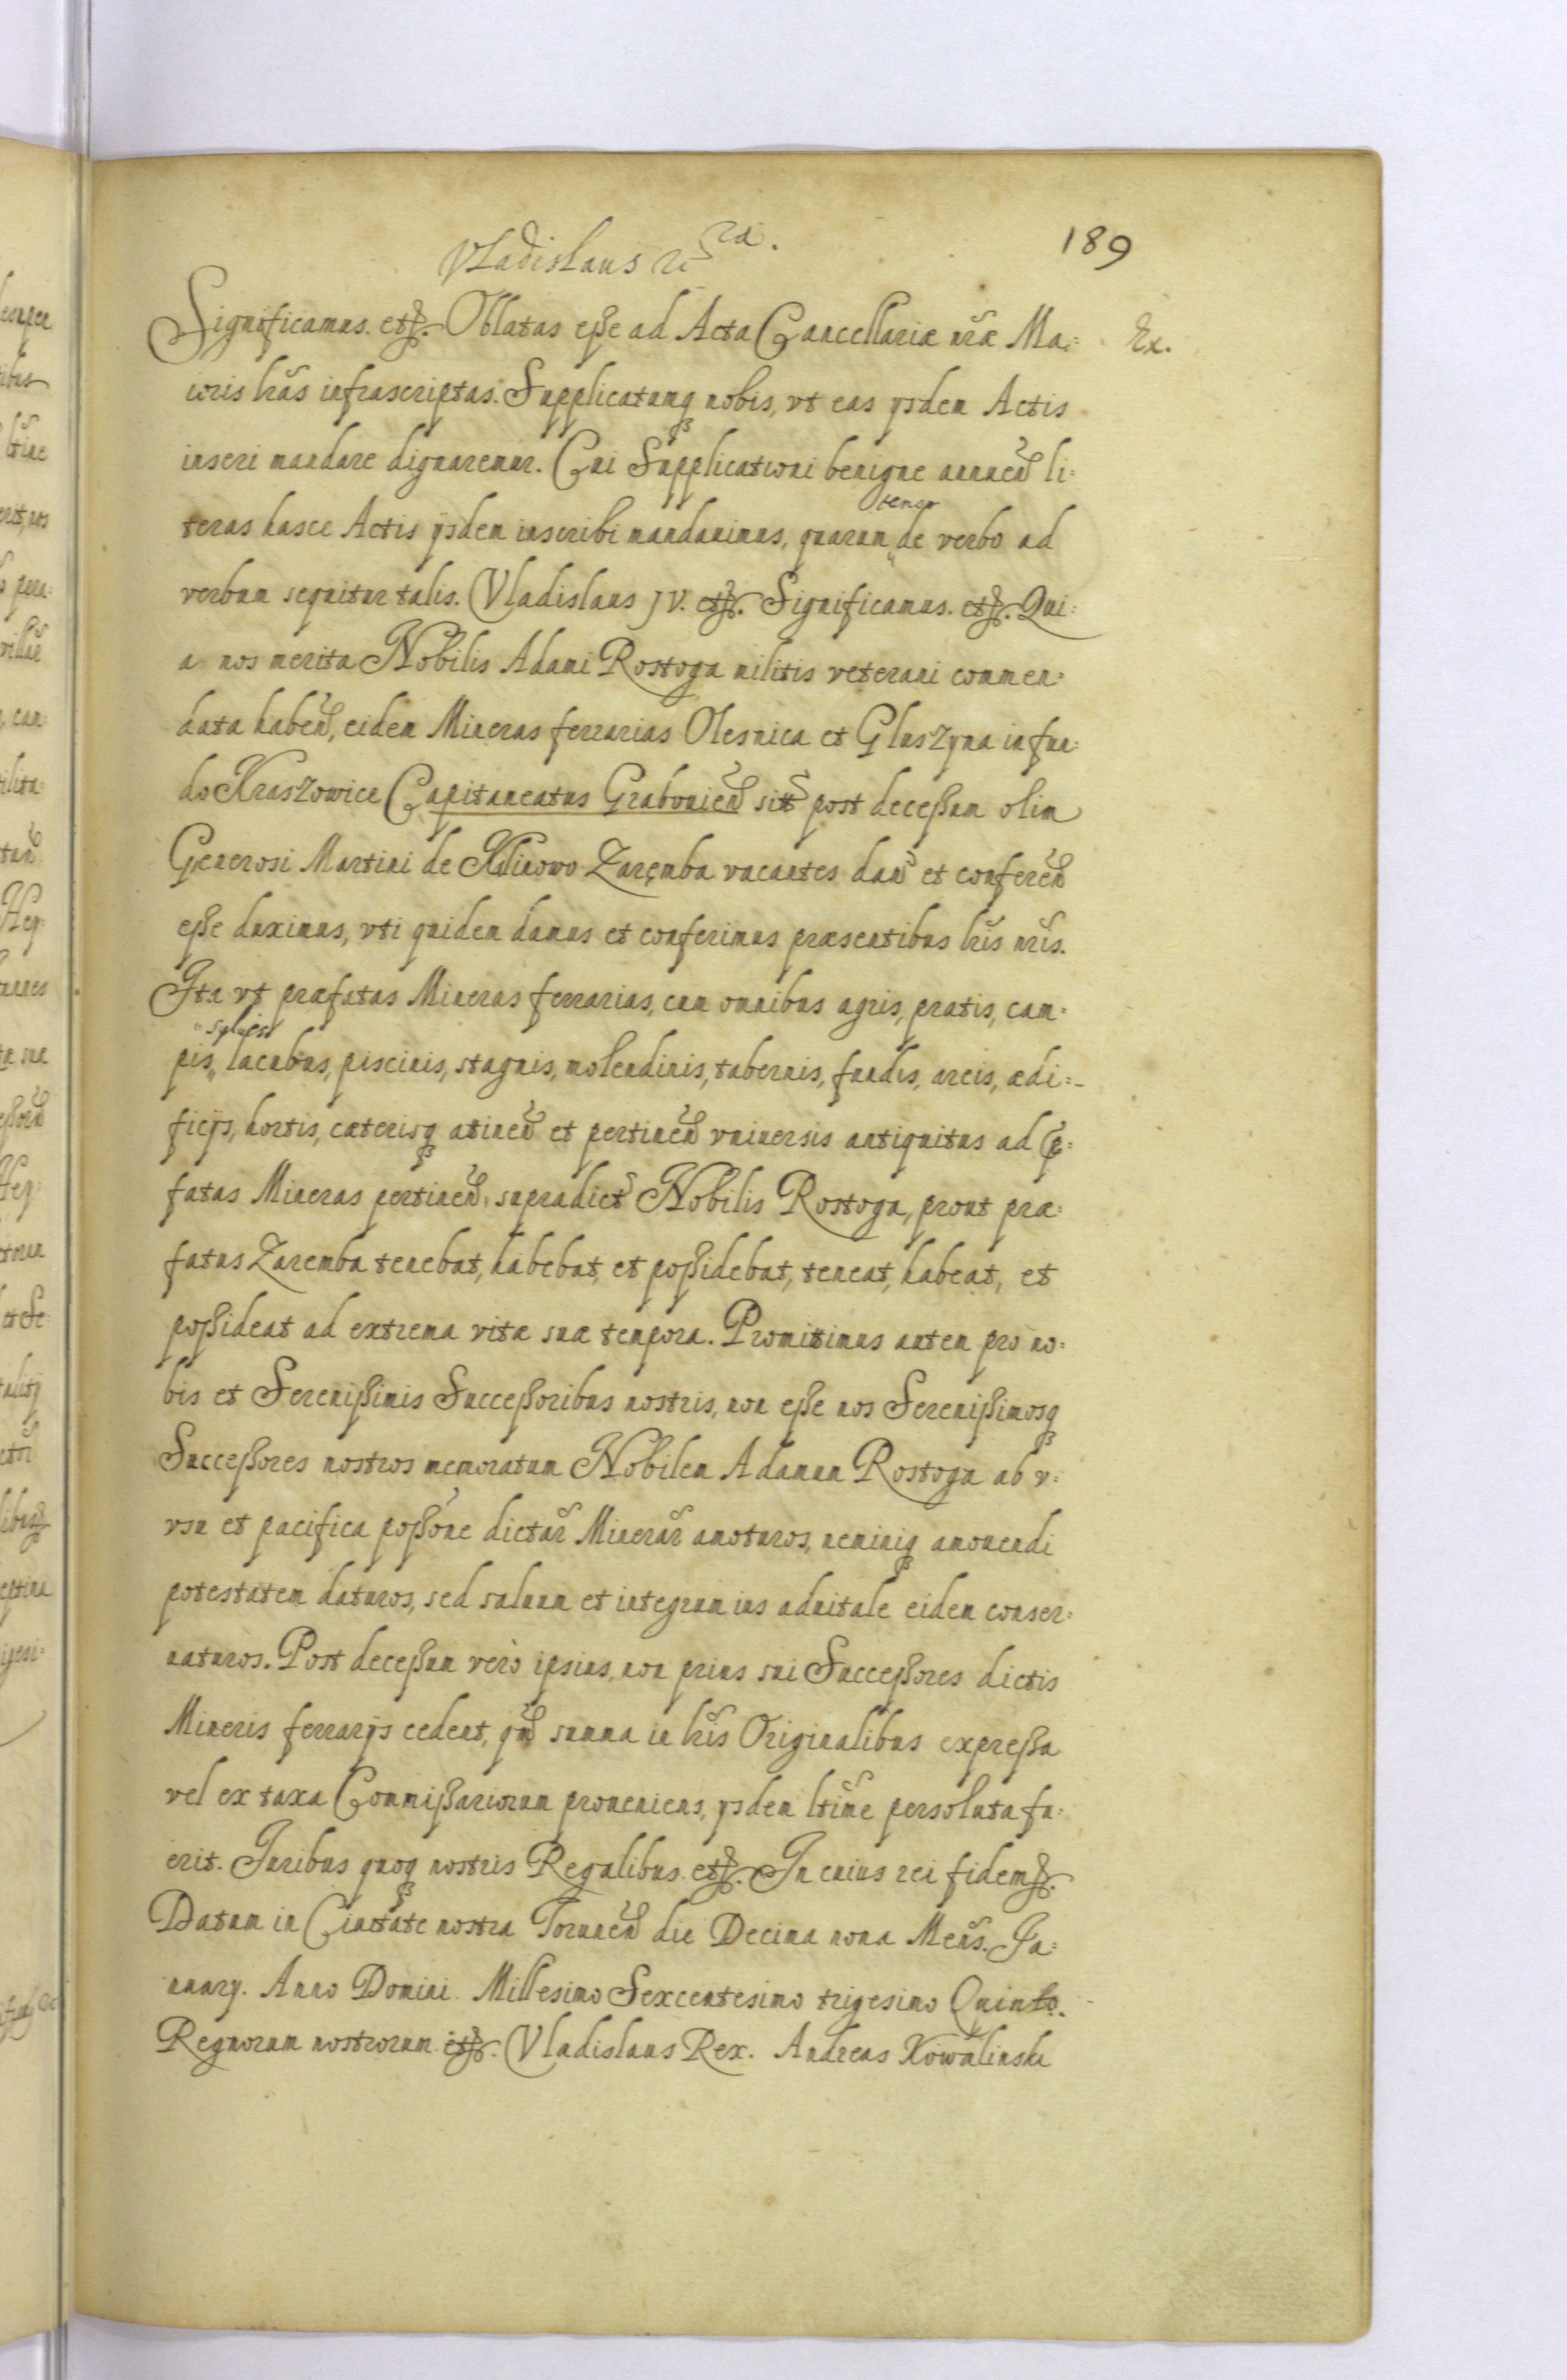 189
Vladislaus
Significamus. etc. Oblatas eße ad Acta Cancellariæ nr̃æ Ma= Ex.
ioris lr̃as infrascriptas. Supplicatumq nobis, vt eas ijsdem Actis
inseri mandare dignaremur. Cui Supplicationi benigne annueñ li=
teras hasce Actis ijsdem inscribi mandauimus, quarum tenor de verbo ad
verbum sequitur talis. Vladislaus IV. etc. Significamus. etc. Qui=
a nos merita Nobilis Adami Rostoga militis veterani commen=
data habeñ, eidem Mineras ferrarias Olesnica et Gluszyna in fun=
do Kraszowice Capitaneatus Grabouieñ sit̃ post deceßum olim
Generosi Martini de Klinowo Zaręmba vacantes dañ et confereñ
eße duximus, vti quidem damus et conferimus præsentibus lr̃is nr̃is.
Ita vt præfatas Mineras ferrarias, cum omnibus agris, pratis, cam=
pis, syluis, lacubus, piscinis, stagnis, molendinis, tabernis, fundis, areis, ædi=
ficijs, hortis, cæterisq atineñ et pertineñ vniuersis antiquitus ad p=
fatas Mineras pertineñ, supradict̃ Nobilis Rostoga, prout præ=
fatus Zaremba tenebat, habebat, et poßidebat, teneat, habeat, et
poßideat ad extrema vitæ suæ tempora. Promitimus autem pro no=
bis et Serenißimis Succeßoribus nostris, non eße nos Serenißimosq
Succeßores nostros memoratum Nobilem Adamum Rostoga ab v=
vsu et pacifica poßon̄e dictar̃ Minerar̃ amoturos, neminiq amouendi
potestatem daturos, sed saluum et integrum ius aduitale eidem conser=
uaturos. Post deceßum verò ipsius, non prius sui Succeßores dictis
Mineris ferrarijs cedent, qm̃ summa in lr̃is Originalibus expreßa
vel ex taxa Commißariorum proueniens, ijsdem ltime persoluta fu=
erit. Iuribus quoq nostris Regalibus. etc. In cuius rei fidem etc.
Datum in Ciuitate nostra Toruneñ die Decima nona Mens̃. Ja=
nuarij. Anno Domini Millesimo Sexcentesimo trigesimo Quinto.
Regnorum nostrorum etc. Vladislaus Rex. Andreas Kowalinski